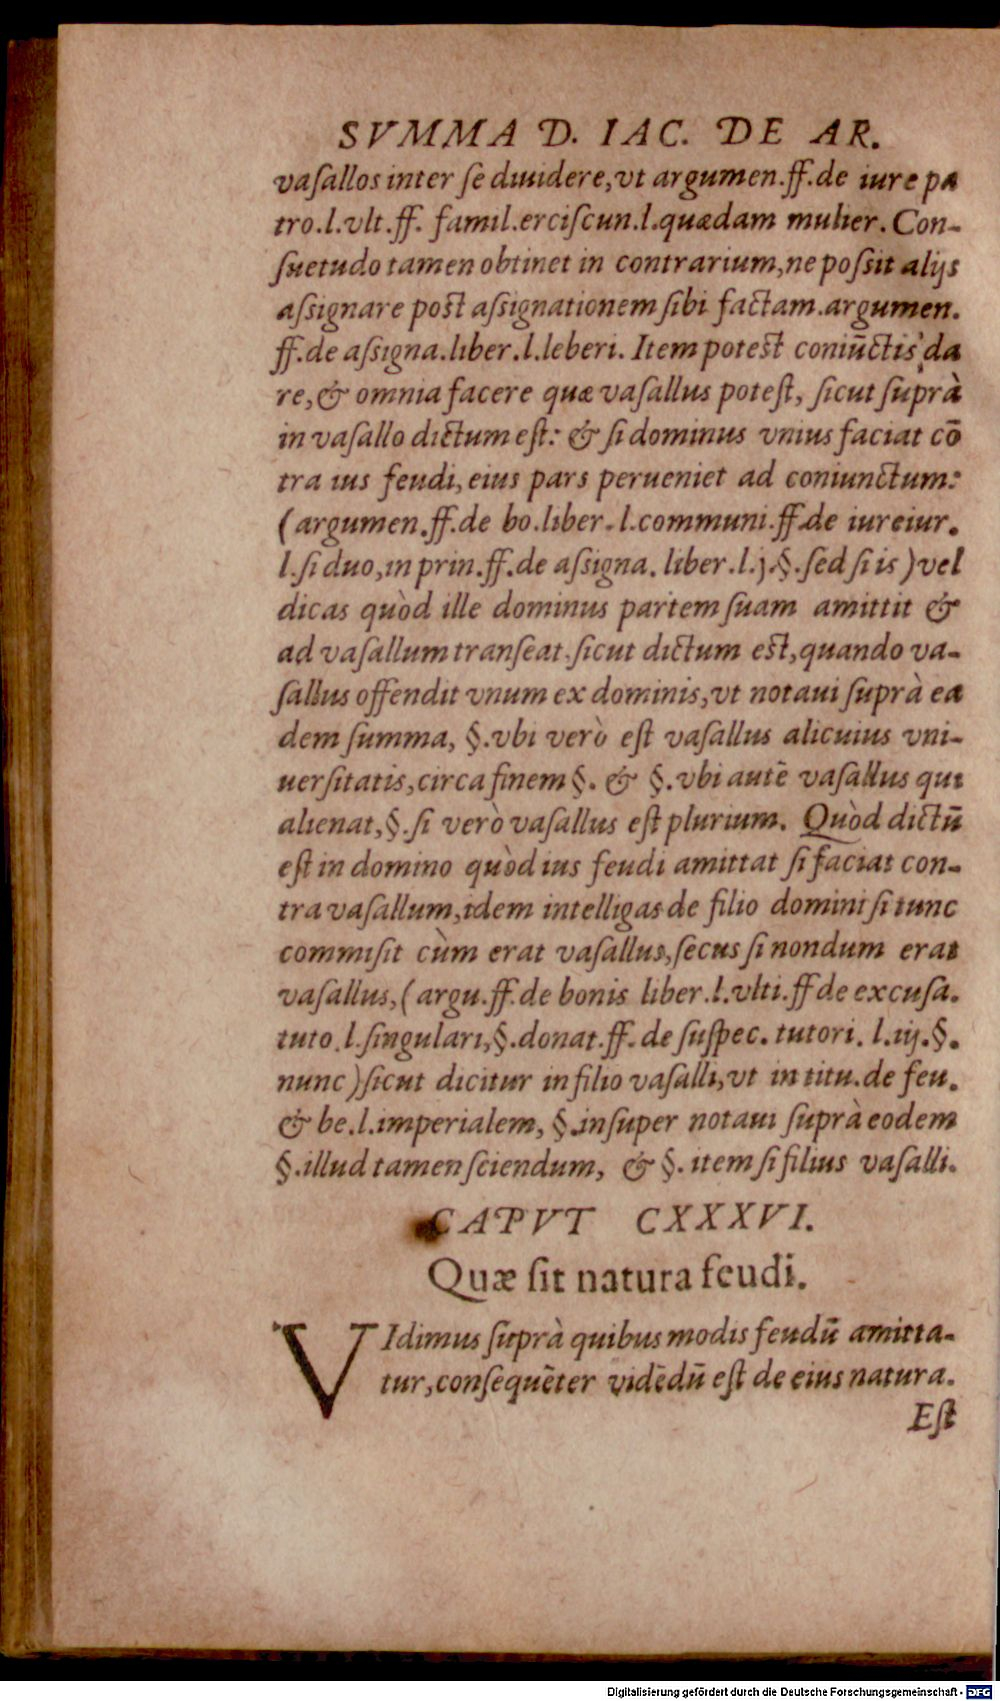 SVMMA D. IAC. DE AR.
vaſallos inter ſe diuidere, vt argumen.ff.de iure pa
tro.l.vlt.ff. famil.erciſcun.l.quædam mulier. Con-
ſuetudo tamen obtinet in contrarium, ne poſsit alijs
aſsignare post aſsignationem ſibi factam.argumen.
ff.de aſsigna.liber.l.leberi. Item potest coniūctis da
re, & omnia facere quæ vaſallus poteſt, ſicut ſuprà
in vaſallo dictum eſt: & ſi dominus vnius faciat cō
tra ius feudi, eius pars perueniet ad coniunctum:
(argumen.ff.de bo.liber.l.communi.ff.de iureiur.
l.ſi duo, in prin.ff.de aſsigna. liber.l.j.§.ſed ſi is) vel
dicas quòd ille dominus partem ſuam amittit &
ad vaſallum tranſeat.ſicut dictum est, quando va-
ſallus offendit vnum ex dominis, vt notaui ſuprà ea
dem ſumma, §.vbi verò eſt vaſallus alicuius vni-
uerſitatis, circa finem §. & §.vbi autē vaſallus qui
alienat, §.ſi verò vaſallus eſt plurium. Quòd dictū
eſt in domino quòd ius feudi amittat ſi faciat con-
tra vaſallum, idem intelligas de filio domini ſi tunc
commiſit cùm erat vaſallus, ſecus ſi nondum erat
vaſallus, (argu.ff.de bonis liber.l.vlti.ff de excuſa.
tuto.l.ſingulari, §.donat.ff.de ſuſpec. tutori. l.iij.§.
nunc) ſicut dicitur in filio vaſalli, vt in titu.de feu.
& be.l.imperialem, §.inſuper notaui ſuprà eodem
§.illud tamen ſciendum, & §. item ſi filius vaſalli.
CAPVT CXXXVI.
Quæ ſit natura feudi.
VIdimus ſuprà quibus modis feudū amitta-
tur, conſequēter vidēdū eſt de eius natura.
Eſt
Digitalisierung gefördert durch die Deutsche Forschungsgemeinschaft - DFG